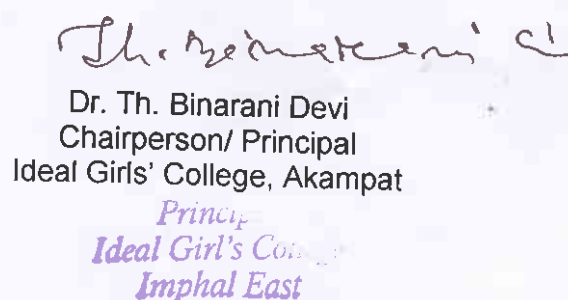 Th. Binarani
Dr. Th. Binarani Devi
Chairperson/ Principal
Ideal Girls' College, Akampat
Ideal Girl's
Imphal East